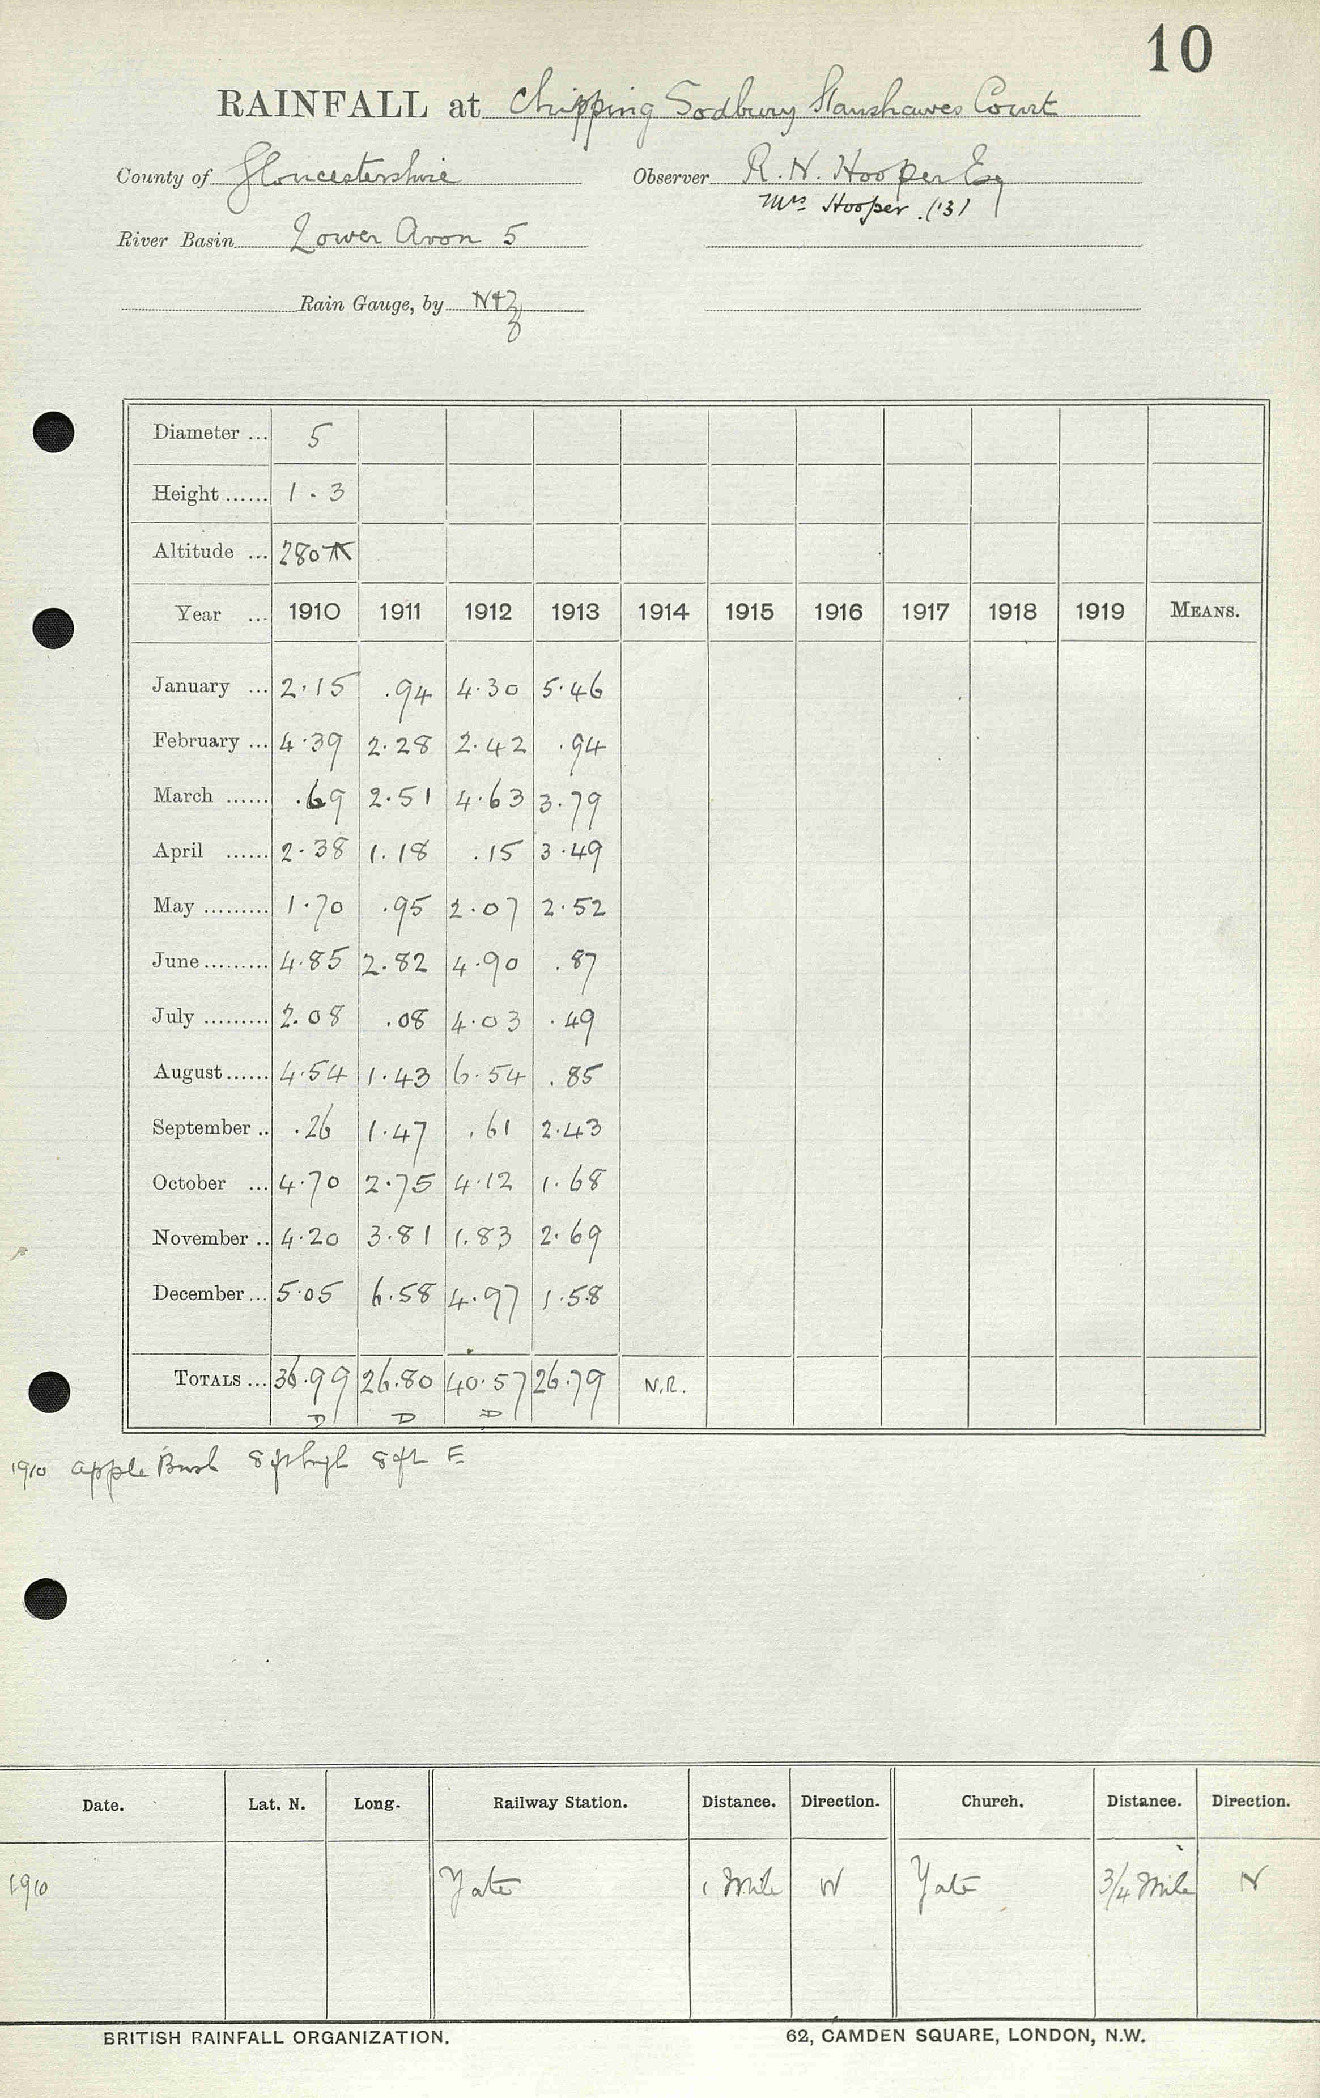 10
RAINFALL at Chipping Sodbury Stanshawes Court
County of Gloucestershire Observer R. N. Hooper Esq
Mrs Hooper (13)
River Basin Lower Avon 5
Rain Gauge, by N+Z
Diameter ... 5
Height ...... 1.3
Altitude ... 280
Year ... 1910 1911 1912 1913 1914 1915 1916 1917 1918 1919 MEANS.
January ... 2.15 .94 4.30 5.46
February ... 4.39 2.28 2.42 .94
March ...... .69 2.51 4.63 3.79
April ...... 2.38 1.18 .15 3.49
May ......... 1.70 .95 2.07 2.52
June ......... 4.85 2.82 4.90 .87
July ......... 2.08 .08 4.03 .49
August ...... 4.54 1.43 6.54 .85
September .. .26 1.47 .61 2.43
October ... 4.70 2.75 4.12 1.68
November .. 4.20 3.81 1.83 2.69
December ... 5.05 6.58 4.97 1.58
TOTALS ... 36.99 26.80 40.57 26.79 N.R.
D D D
1910 apple Bush 8 ft high 8 ft E
Date. Lat. N. Long. Railway Station. Distance. Direction. Church. Distance. Direction.
1910 Yate 1 Mile W Yate 3/4 Mile N
BRITISH RAINFALL ORGANIZATION. 62, CAMDEN SQUARE, LONDON, N.W.